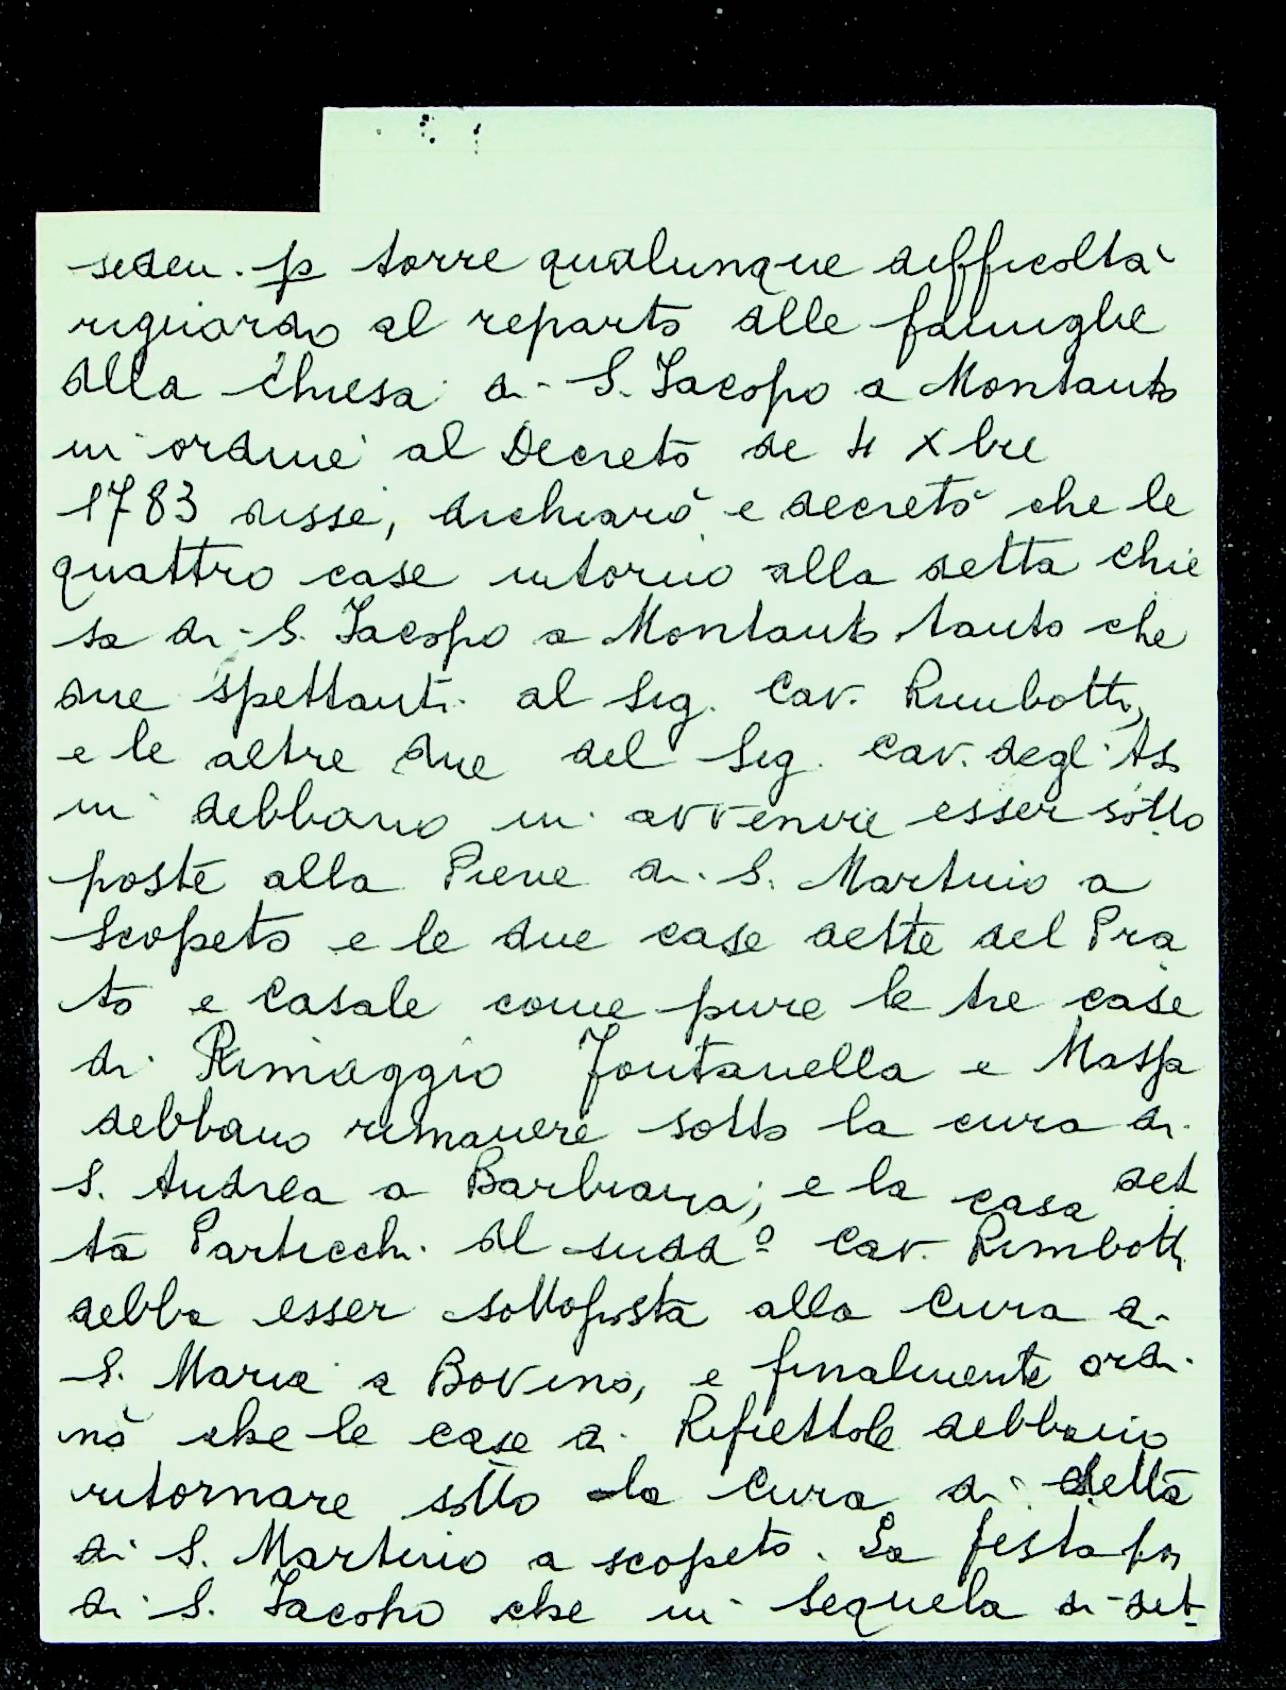 seden. p torre qualunque difficoltà
riguardo al reparto delle famiglie
della Chiesa di S. Jacopo a Montauto
in ordine al Decreto de 4 Xbre
1783 disse, dichiarò e decretò che le
quattro case intorno alla detta Chie
sa di S. Jacopo a Montauto tanto che
due spettanti al Sig. Cav. Rimbotti,
e le altre due del Sig. Cav. degl'As
ni debbano in avvenire esser sotto
poste alla Pieve di S. Martino a
Scopeto e le due case dette del Pra
to e Casale come pure le tre case
di Rimaggio Fontanella e Massa
debbano rimanere sotto la cura di
S. Andrea a Barbiana; e la casa det
ta Particchi del sudd.º Cav. Rimbotti
debba esser sottoposta alla Cura di
S. Maria a Bovino, e finalmente ordi
nò che le case di Rifiettole debbano
ritornare sotto la Cura di detta
di S. Martino a scopeto. La festa poi
di S. Jacopo che in sequela di det